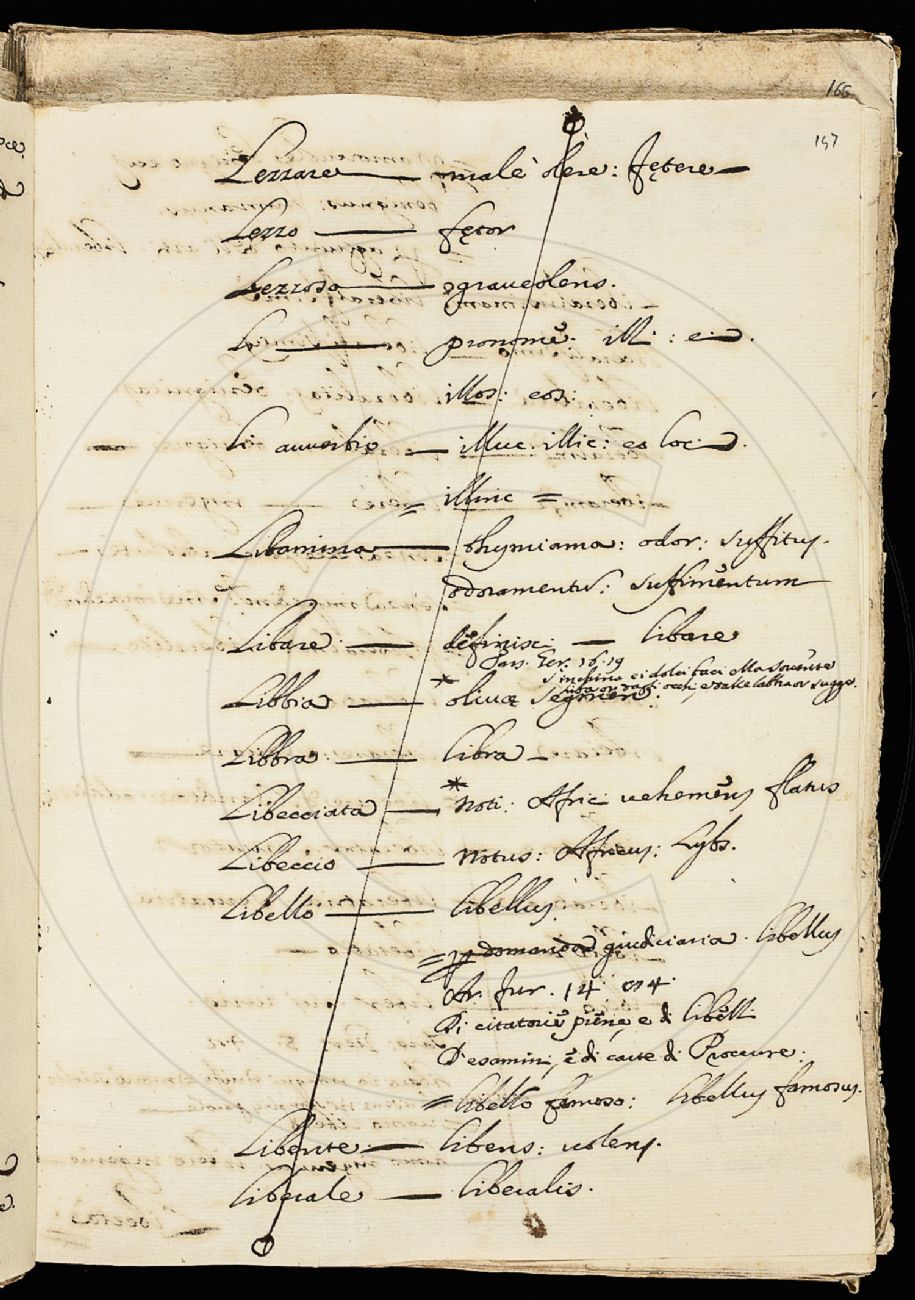 166
197
Lezzare — male olere: fętere —
Lezzo — fętor
Lezzoso — graveolens.
Li — pronome. illi: ei.
illos: eos:
Li avverbio — illuc. illic: eo loci.
= illinc =
Libamina — thymiama: odor: suffitus.
odoramentũ: suffimentum
Libare — — libare
16. 19
S'inchina e i dolci baci ella sovente
liba or dagli occhi, e dalle labbra or sugge.
Libbia — * olivę
Libbra — libra —
Libecciata — * Noti: Afric: vehemens flatus
Libeccio — Notus: Africus: Lybs.
Libello — libellus.
= domanda giudiciaria. libellus
Ar. Fur. 14. 84.
Di citatorie piene, e di libelli
D'esamini, e di carte di Procure:
= libello famoso: libellus famosus.
Libente — libens: volens.
Liberale — liberalis.